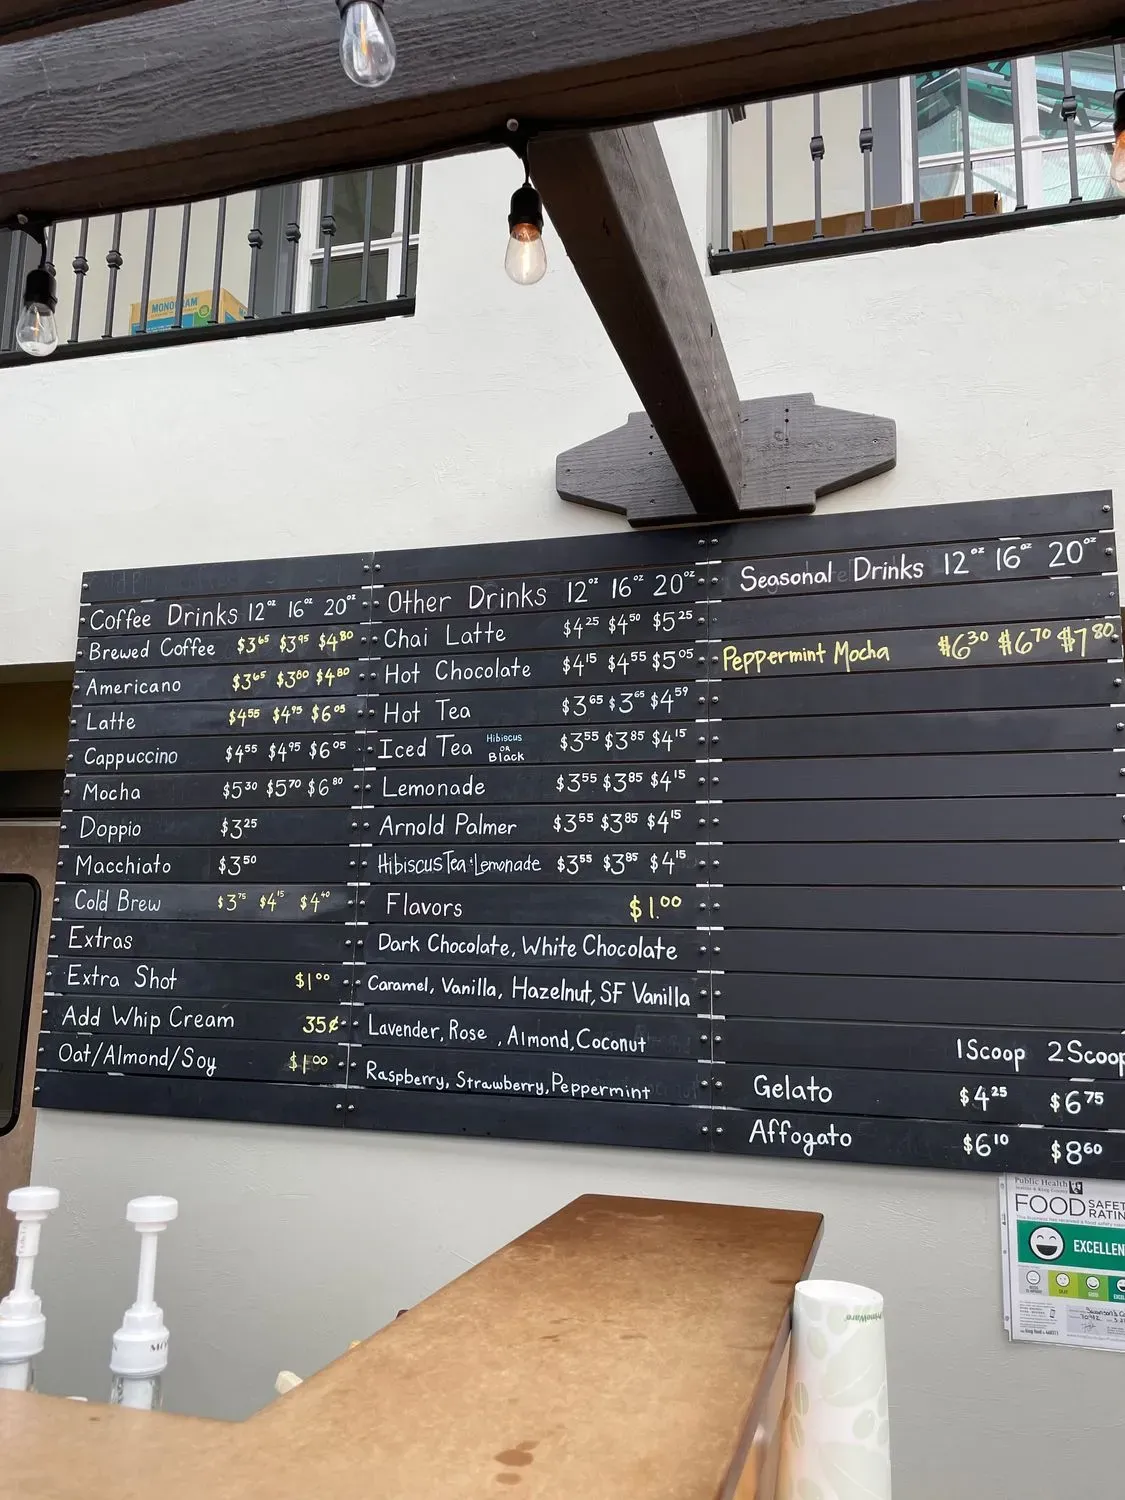 MONOGRAM
Coffee Drinks 12oz 16oz 20oz
Brewed Coffee $3.65 $3.95 $4.80
Americano $3.65 $3.80 $4.80
Latte $4.55 $4.95 $6.05
Cappuccino $4.55 $4.95 $6.05
Mocha $5.30 $5.70 $6.80
Doppio $3.25
Macchiato $3.50
Cold Brew $3.75 $4.15 $4.40
Extras
Extra Shot $1.00
Add Whip Cream 35¢
Oat/Almond/Soy $1.00
Other Drinks 12oz 16oz 20oz
Chai Latte $4.25 $4.50 $5.25
Hot Chocolate $4.15 $4.55 $5.05
Hot Tea $3.65 $3.65 $4.59
Iced Tea Hibiscus OR Black $3.55 $3.85 $4.15
Lemonade $3.55 $3.85 $4.15
Arnold Palmer $3.55 $3.85 $4.15
Hibiscus Tea Lemonade $3.55 $3.85 $4.15
Flavors $1.00
Dark Chocolate, White Chocolate
Caramel, Vanilla, Hazelnut, SF Vanilla
Lavender, Rose , Almond, Coconut
Raspberry, Strawberry, Peppermint
Seasonal Drinks 12oz 16oz 20oz
Peppermint Mocha $6.30 $6.70 $7.80
1 Scoop 2 Scoop
Gelato $4.25 $6.75
Affogato $6.10 $8.60
Public Health
Seattle & King County
FOOD SAFET
RATIN
EXCELLEN
PrimeWare